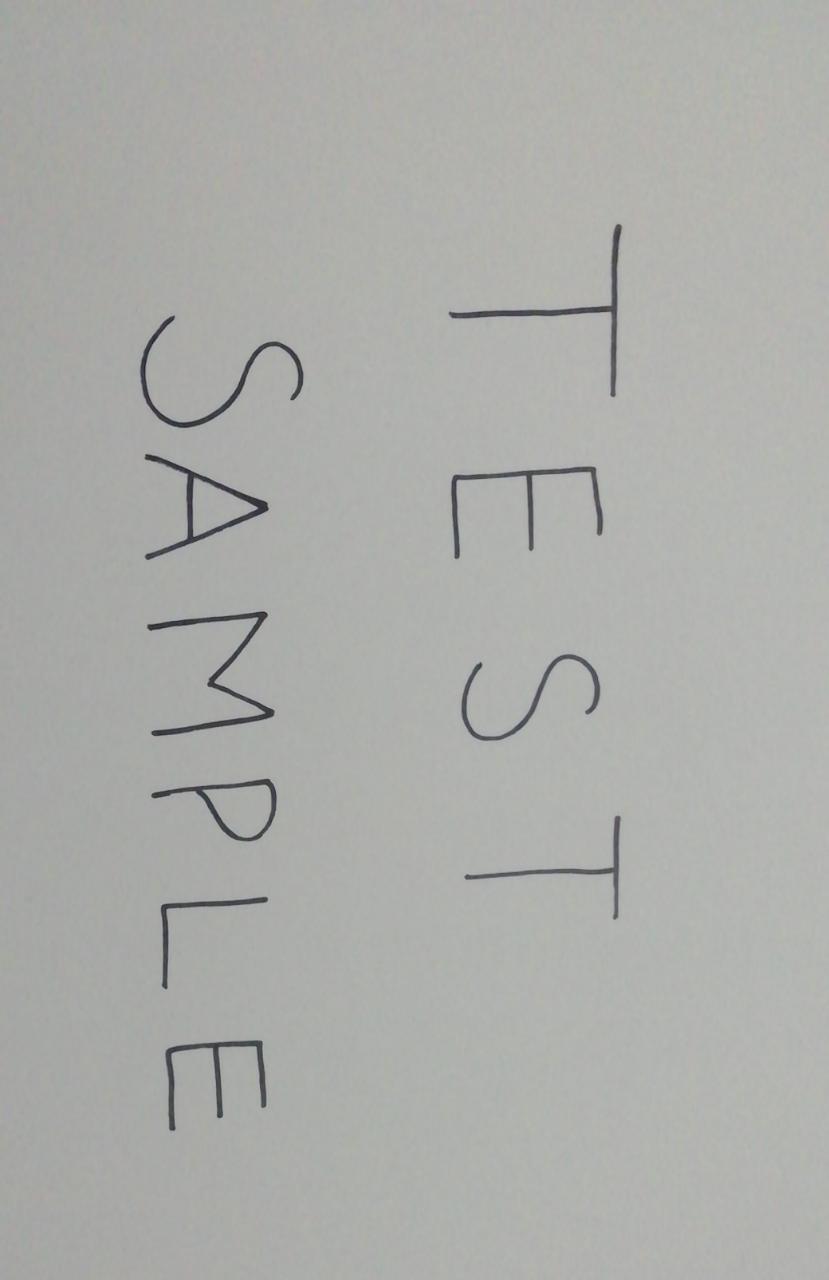 TEST
SAMPLE